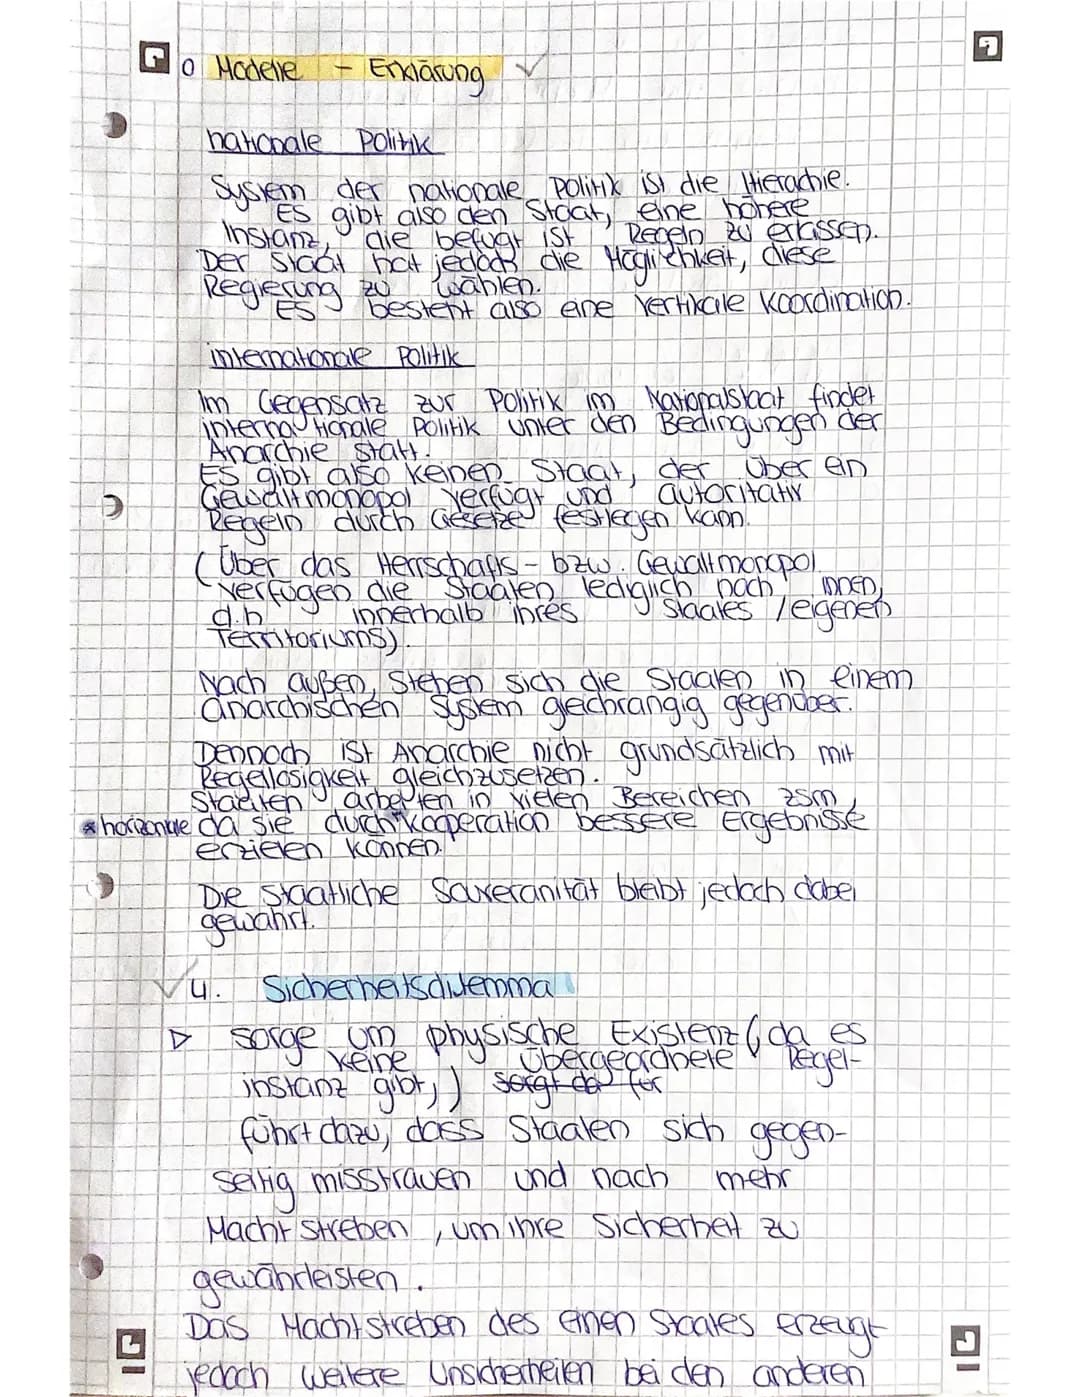 o Modelle - Erklärung ✓
nationale Politik
System der nationale Politik ist die Hierachie.
Es gibt also den Staat, eine höhere
Instanz, die befugt ist Regeln zu erlassen.
Der Staat hat jedoch die Möglichkeit, diese
Regierung zu wählen.
Es besteht also eine vertikale Koordination.
internationale Politik
Im Gegensatz zur Politik im Nationalstaat findet
internationale Politik unter den Bedingungen der
Anarchie statt.
Es gibt also keinen Staat, der über ein
Gewaltmonopol verfügt und autoritativ
Regeln durch Gesetze festlegen kann.
(Über das Herrschafts- bzw. Gewaltmonopol
verfügen die Staaten lediglich nach innen,
d.h innerhalb ihres Staates / eigenen
Territoriums).
Nach außen, stehen sich die Staaten in einem
anarchischen System gleichrangig gegenüber.
Dennoch ist Anarchie nicht grundsätzlich mit
Regellosigkeit gleichzusetzen.
Staaten arbeiten in vielen Bereichen zsm,
*horizontale da sie durch *kooperation bessere Ergebnisse
erzielen können.
Die staatliche Souveränität bleibt jedoch dabei
gewahrt.
✓ 4. Sicherheitsdilemma
▷ Sorge um physische Existenz (da es
keine übergeordnete Regel-
instanz gibt,) sorgt da für
führt dazu, dass Staaten sich gegen-
seitig misstrauen und nach mehr
Macht streben, um ihre Sicherheit zu
gewährleisten.
Das Machtstreben des einen Staates erzeugt
jedoch weitere Unsicherheiten bei den anderen